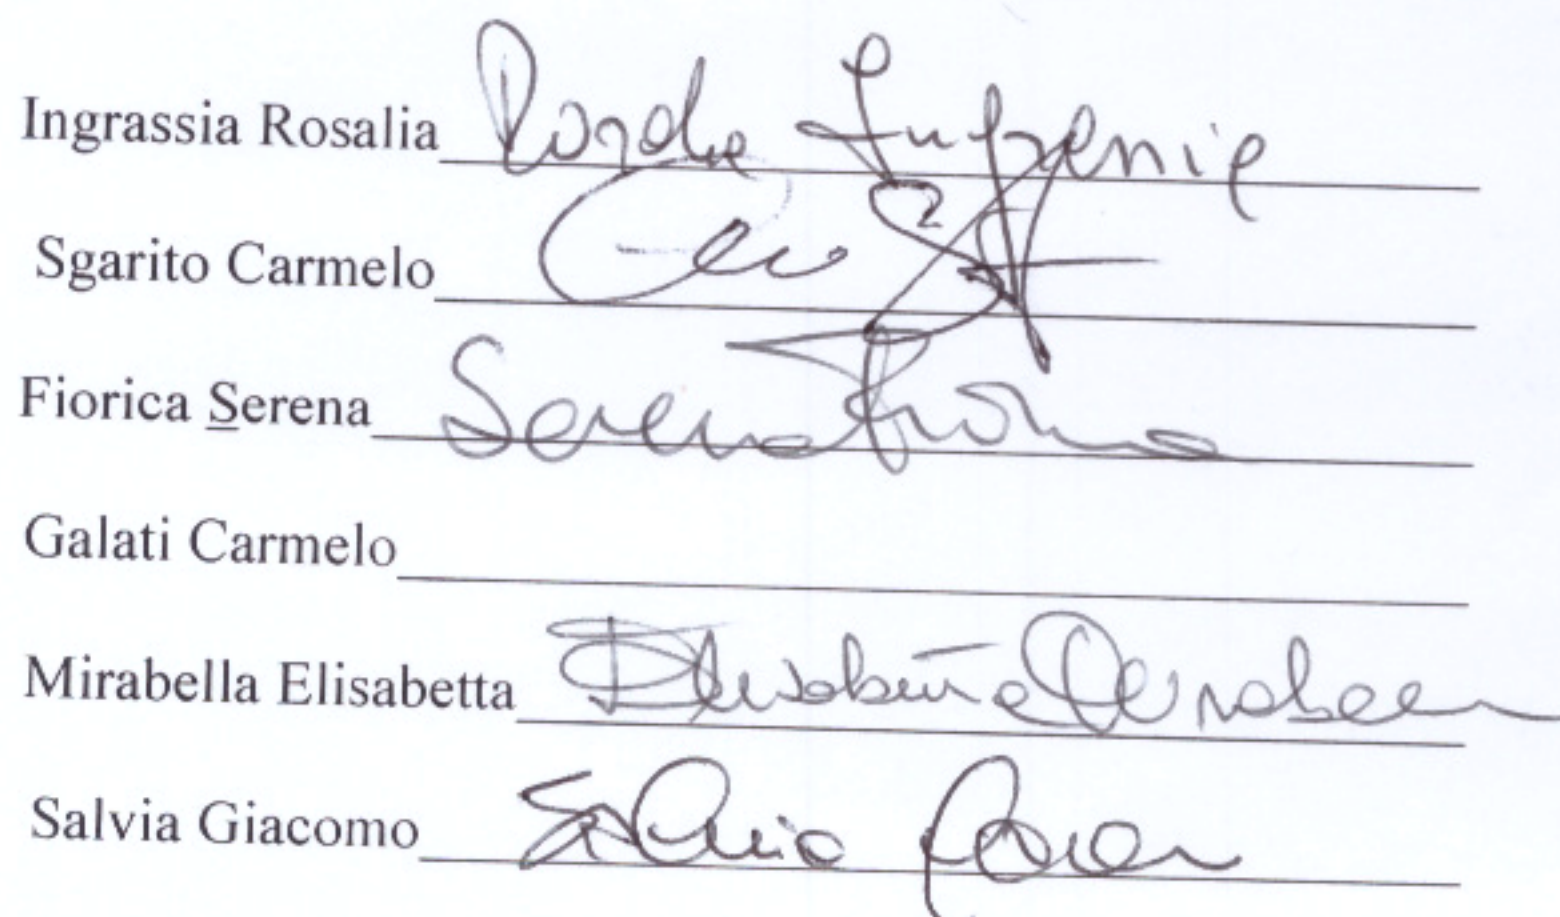 Ingrassia Rosalia
Sgarito Carmelo
Fiorica Serena Serena Fiorica
Galati Carmelo
Mirabella Elisabetta Elisabetta Mirabella
Salvia Giacomo Salvia